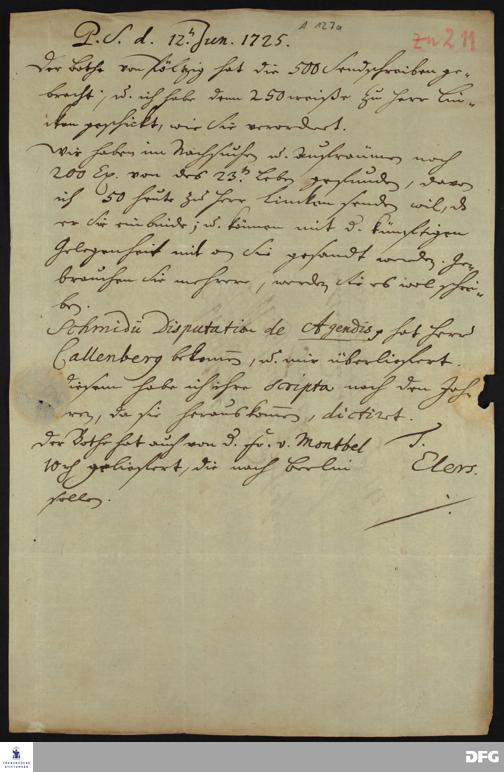 A 127a
zu 211
P. S. d. 12t Jun. 1725.
Der Bothe von Költzig hat die 500 Sendschreiben ge-
bracht; u. ich habe denn 250 weiße zu Herr Lin-
cken geschickt, wie Sie verordnet.
Wir haben im Nachsuchen u. Aufräumen noch
200 Ex. von des 23t Leben gefunden, davon
ich 50 heute zu Herr Lincken senden wil, dz
er Sie einbinde; u. können mit d. künftigen
Gelegenheit mit an Sie gesandt werden. Ge-
brauchen Sie mehrere, werden Sie es wol schrei-
ben.
Schmidii Disputation de Agendis, hat Herr
Callenberg bekommen, u. mir überliefert.
diesem habe ich ihre Scripta nach den Jah-
ren, da sie herauskommen, dictiret.
Der Bothe hat auch von d. Fr. v. Montbel
10 rh geliefert, die nach Berlin
sollen.
T.
Elers.
FRANCKESCHE STIFTUNGEN
DFG